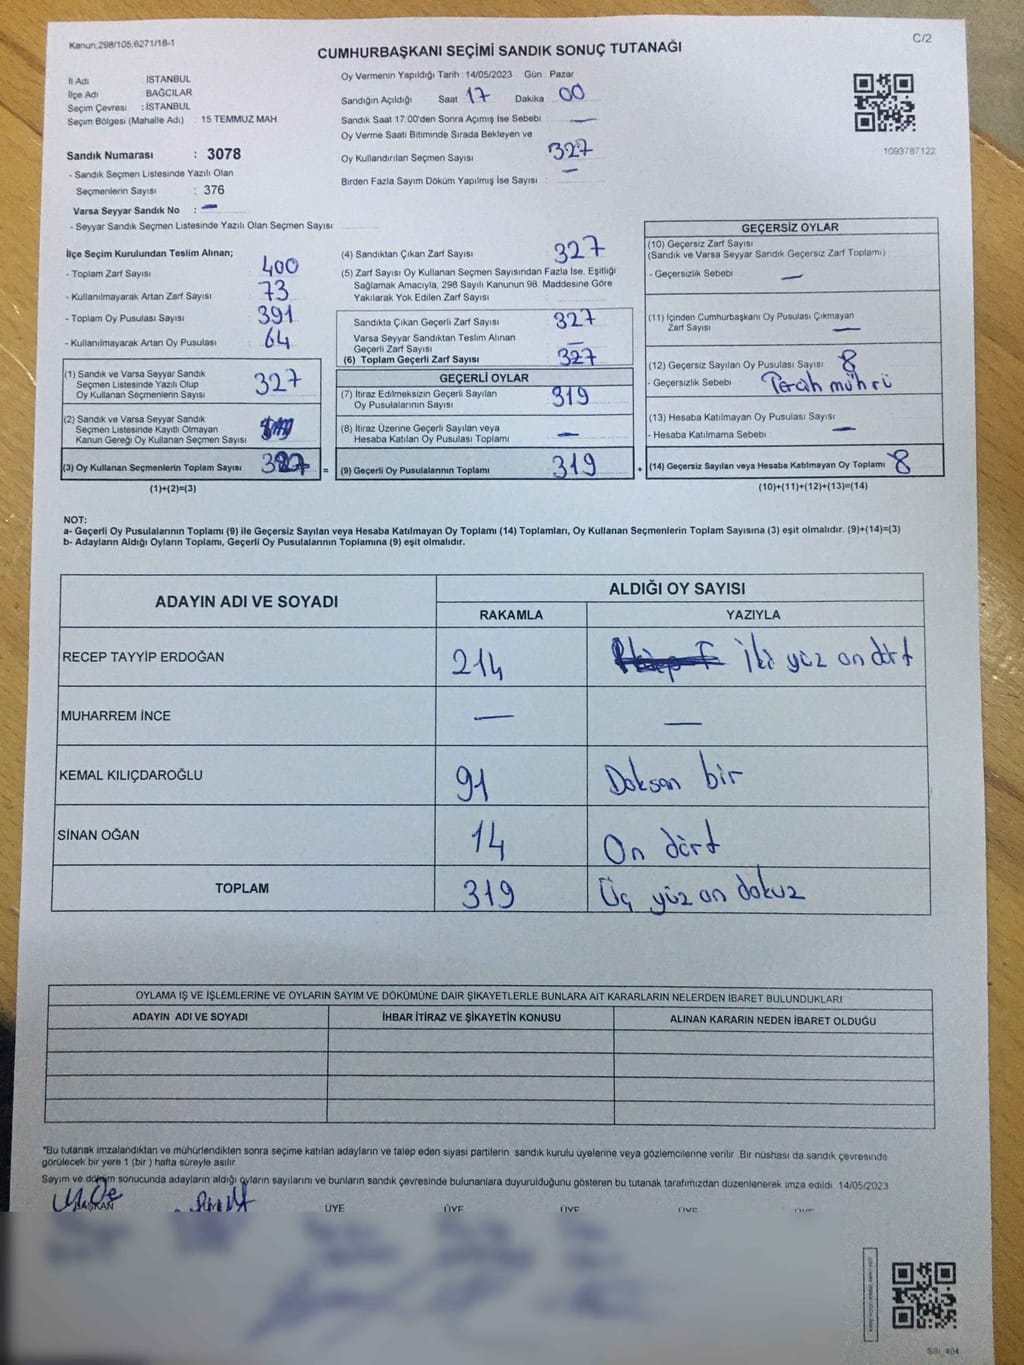 Kanun;298/105,6271/18-1
C/2
CUMHURBAŞKANI SEÇİMİ SANDIK SONUÇ TUTANAĞI
İl Adı İSTANBUL
İlçe Adı BAĞCILAR
Seçim Çevresi : İSTANBUL
Seçim Bölgesi (Mahalle Adı) 15 TEMMUZ MAH
Sandık Numarası : 3078
- Sandık Seçmen Listesinde Yazılı Olan
Seçmenlerin Sayısı : 376
Varsa Seyyar Sandık No : —
- Seyyar Sandık Seçmen Listesinde Yazılı Olan Seçmen Sayısı:
Oy Vermenin Yapıldığı Tarih : 14/05/2023 Gün : Pazar
Sandığın Açıldığı Saat 17 Dakika 00
Sandık Saat 17:00'den Sonra Açımış İse Sebebi —
Oy Verme Saati Bitiminde Sırada Bekleyen ve
Oy Kullandırılan Seçmen Sayısı 327
Birden Fazla Sayım Döküm Yapılmış İse Sayısı : —
1093787122
İlçe Seçim Kurulundan Teslim Alınan;
- Toplam Zarf Sayısı 400
- Kullanılmayarak Artan Zarf Sayısı 73
- Toplam Oy Pusulası Sayısı 391
- Kullanılmayarak Artan Oy Pusulası 64
(1) Sandık ve Varsa Seyyar Sandık
Seçmen Listesinde Yazılı Olup
Oy Kullanan Seçmenlerin Sayısı 327
(2) Sandık ve Varsa Seyyar Sandık
Seçmen Listesinde Kayıtlı Olmayan
Kanun Gereği Oy Kullanan Seçmen Sayısı
(3) Oy Kullanan Seçmenlerin Toplam Sayısı 327 =
(1)+(2)=(3)
(4) Sandıktan Çıkan Zarf Sayısı 327
(5) Zarf Sayısı Oy Kullanan Seçmen Sayısından Fazla İse, Eşitliği
Sağlamak Amacıyla, 298 Sayılı Kanunun 98. Maddesine Göre
Yakılarak Yok Edilen Zarf Sayısı
Sandıkta Çıkan Geçerli Zarf Sayısı 327
Varsa Seyyar Sandıktan Teslim Alınan
Geçerli Zarf Sayısı —
(6) Toplam Geçerli Zarf Sayısı 327
GEÇERLİ OYLAR
(7) İtiraz Edilmeksizin Geçerli Sayılan
Oy Pusulalarının Sayısı 319
(8) İtiraz Üzerine Geçerli Sayılan veya
Hesaba Katılan Oy Pusulası Toplamı —
(9) Geçerli Oy Pusulalarının Toplamı 319 +
GEÇERSİZ OYLAR
(10) Geçersiz Zarf Sayısı
(Sandık ve Varsa Seyyar Sandık Geçersiz Zarf Toplamı)
- Geçersizlik Sebebi —
(11) İçinden Cumhurbaşkanı Oy Pusulası Çıkmayan
Zarf Sayısı —
(12) Geçersiz Sayılan Oy Pusulası Sayısı 8
- Geçersizlik Sebebi Tercih mührü
(13) Hesaba Katılmayan Oy Pusulası Sayısı
- Hesaba Katılmama Sebebi —
(14) Geçersiz Sayılan veya Hesaba Katılmayan Oy Toplamı 8
(10)+(11)+(12)+(13)=(14)
NOT:
a- Geçerli Oy Pusulalarının Toplamı (9) ile Geçersiz Sayılan veya Hesaba Katılmayan Oy Toplamı (14) Toplamları, Oy Kullanan Seçmenlerin Toplam Sayısına (3) eşit olmalıdır. (9)+(14)=(3)
b- Adayların Aldığı Oyların Toplamı, Geçerli Oy Pusulalarının Toplamına (9) eşit olmalıdır.
ADAYIN ADI VE SOYADI
ALDIĞI OY SAYISI
RAKAMLA YAZIYLA
RECEP TAYYİP ERDOĞAN 214 İki yüz on dört
MUHARREM İNCE — —
KEMAL KILIÇDAROĞLU 91 Doksan bir
SİNAN OĞAN 14 On dört
TOPLAM 319 Üç yüz on dokuz
OYLAMA İŞ VE İŞLEMLERİNE VE OYLARIN SAYIM VE DÖKÜMÜNE DAİR ŞİKAYETLERLE BUNLARA AİT KARARLARIN NELERDEN İBARET BULUNDUKLARI
ADAYIN ADI VE SOYADI İHBAR İTİRAZ VE ŞİKAYETİN KONUSU ALINAN KARARIN NEDEN İBARET OLDUĞU
*Bu tutanak imzalandıktan ve mühürlendikten sonra seçime katılan adayların ve talep eden siyasi partilerin sandık kurulu üyelerine veya gözlemcilerine verilir .Bir nüshası da sandık çevresinde
görülecek bir yere 1 (bir ) hafta süreyle asılır.
Sayım ve döküm sonucunda adayların aldığı oyların sayılarını ve bunların sandık çevresinde bulunanlara duyurulduğunu gösteren bu tutanak tarafımızdan düzenlenerek imza edildi. 14/05/2023
BAŞKAN ÜYE ÜYE ÜYE ÜYE